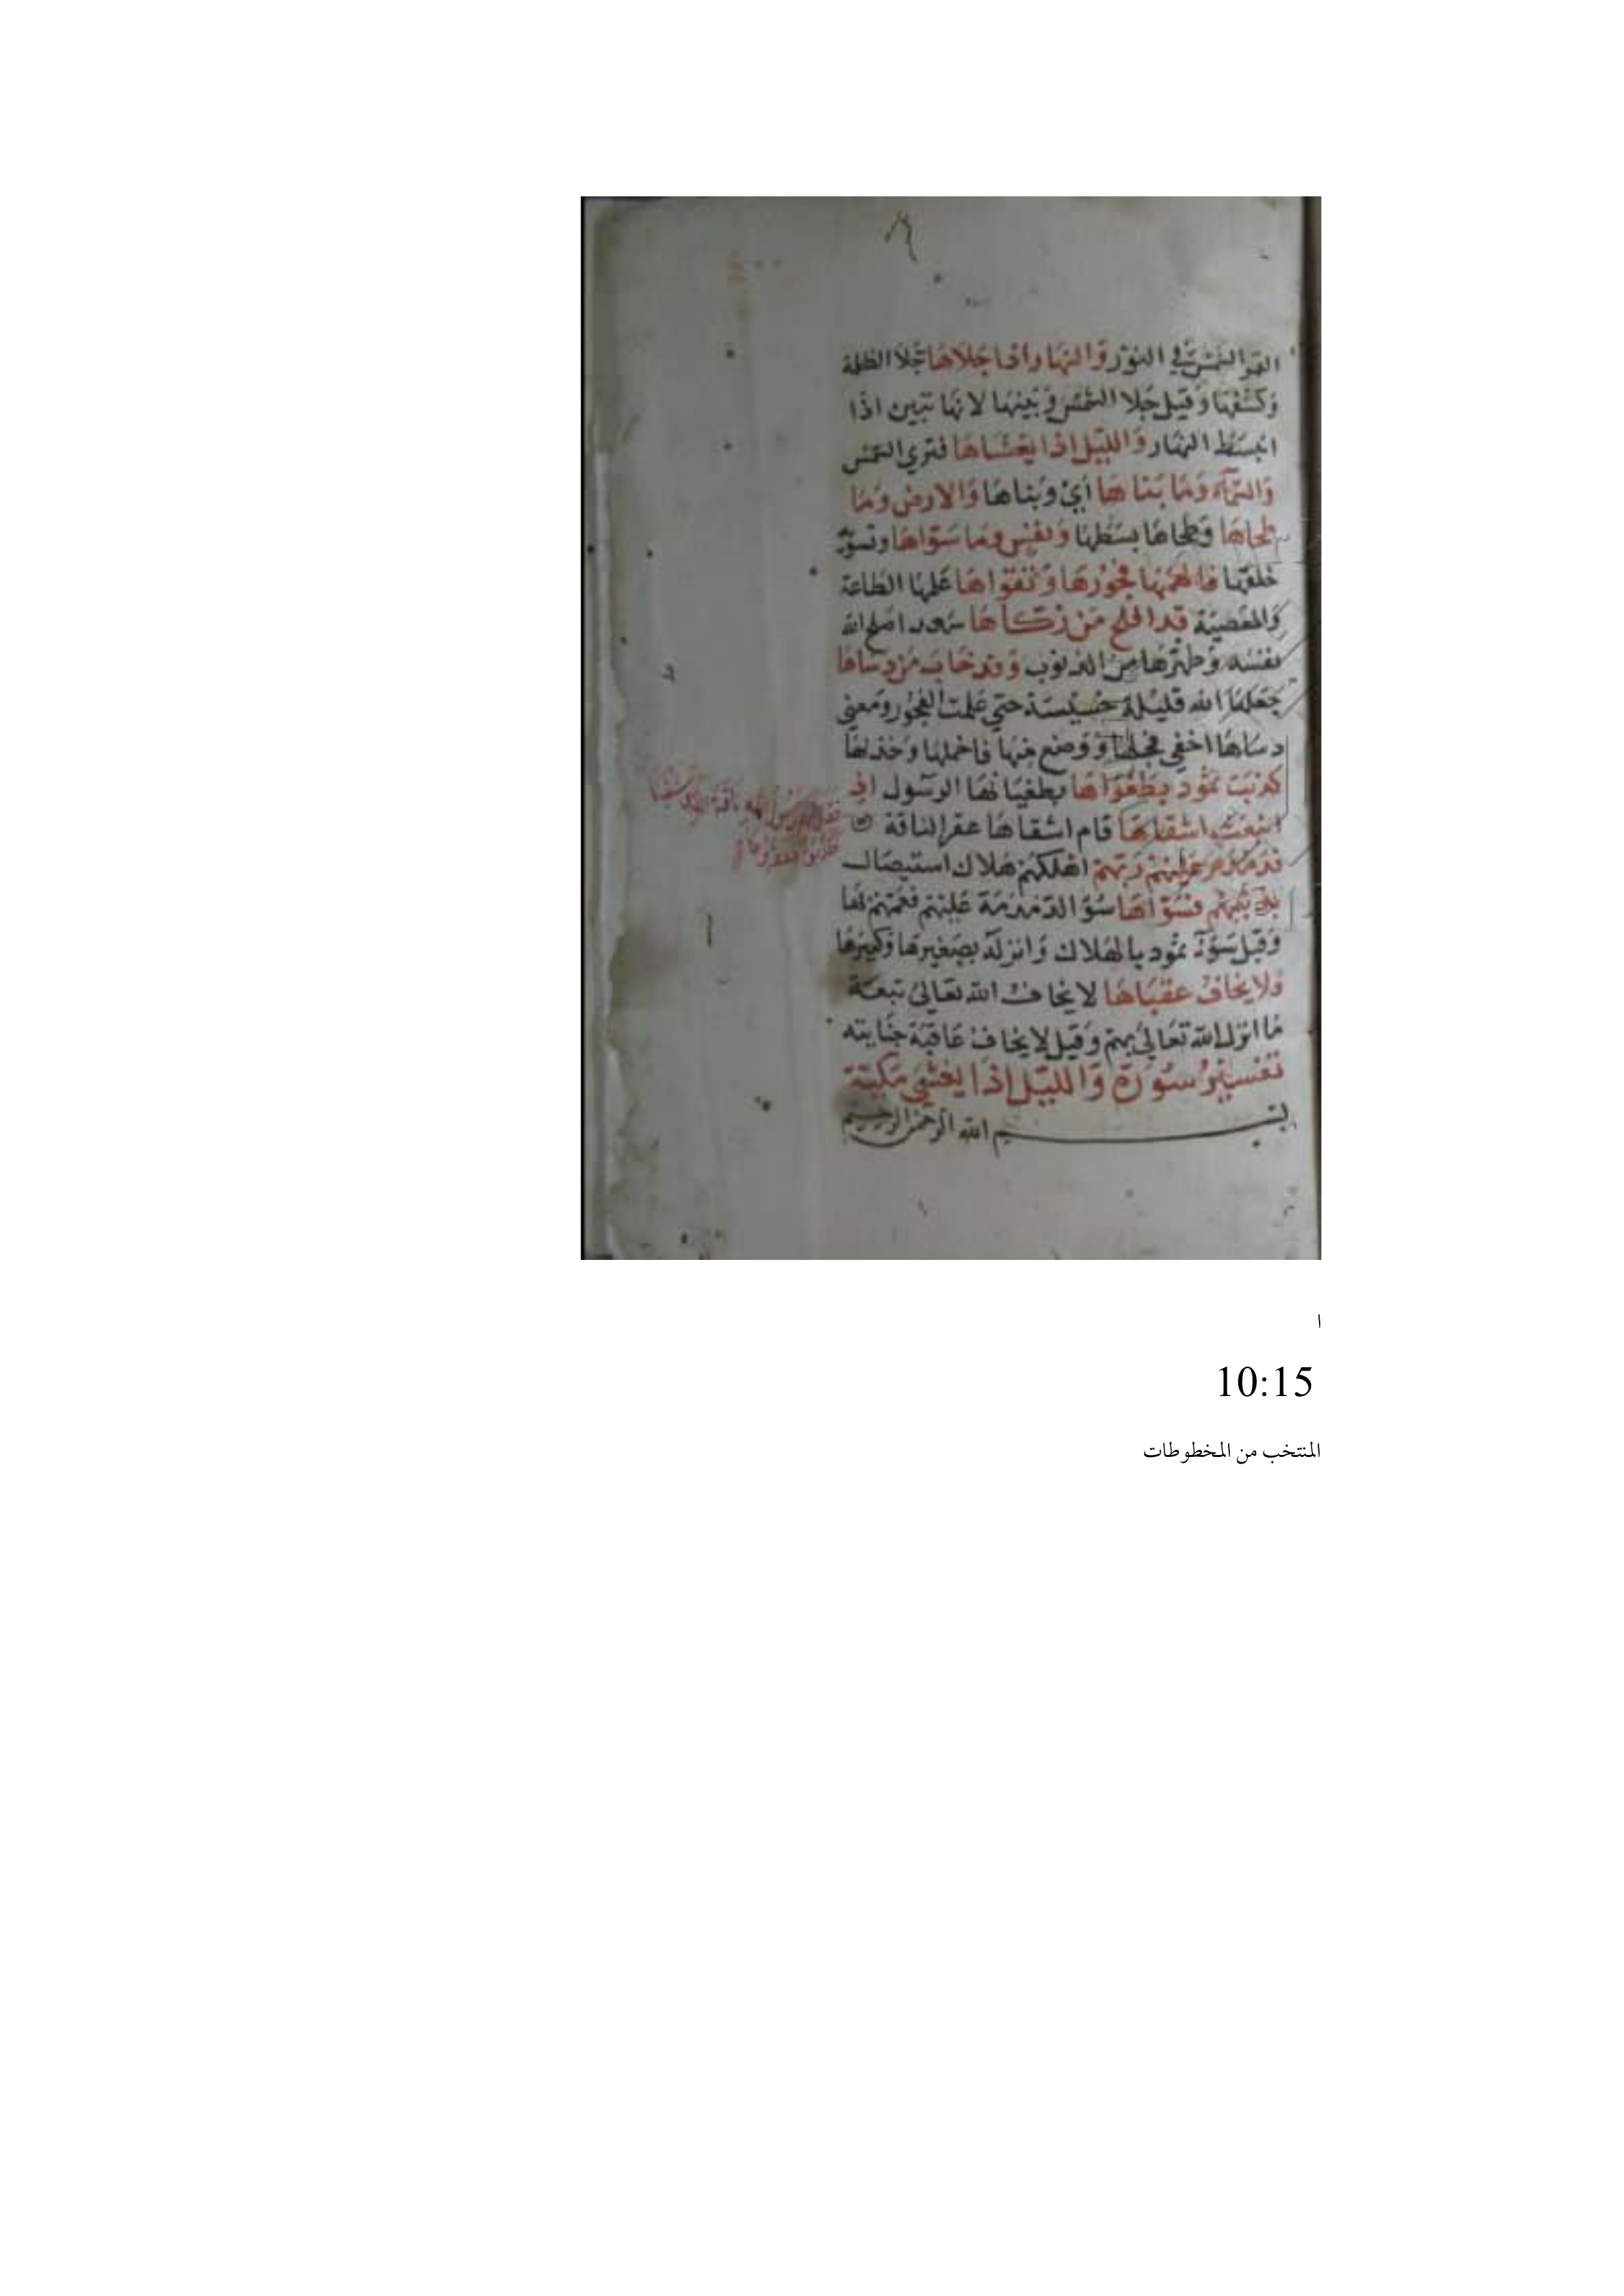 القمر الشمس في النور وَالنهَار اذا جَلاهَا جَلا الظلمة
وَكشفهَا وَقيل جَلا الشمس وَبَينهَا لانهَا تبين اذا
انبسَط النهَار وَالليل اذا يغشَاهَا فتري الشمس
وَالسمآء وَمَا بَنَاهَا أيْ وَبناهَا وَالارض وَمَا
طحاهَا وطحاهَا بسَطهَا وَنفس ومَا سَوّاهَا
خلقهَا فالهمَهَا فجُورهَا وَتقوَاهَا علمهَا الطاعَة
وَالمعَصيَة قدافلح مَنْ زكاهَا سَعد اصلح الله
نفسه وَطهّرهَا من الذنوب وَقد خابَ مَن دساهَا
جَعلهَا الله قليلة خسيسَة حتي عَملت الفجُور ومَعني
دساهَا اخفي محلها وَوضع منهَا فاخملهَا وَخذلهَا
كذبَت ثمُود بطَغوَاهَا بطغيَانهَا الرسُول اذِ
انبعَث اشقاهَا قام اشقاهَا عقر الناقة
فدمدم عليهْم رَبهمْ اهلكهُمْ هَلاك استيصَال
بذنبهم فسَوّاهَا سوّ الدّمدمَة عَليْهم فعمّهمْ بهَا
وَقيل سَوّي ثمُود بالهَلاك وَانزله بصَغيرهَا وَكبيرهَا
فلا يخافُ عقبَاهَا لا يخاف الله تعَالىْ تبعَة
مَا انزل الله تعَالىْ بهم وَقيل لا يخاف عَاقبَة جنَايته
تفسيرُ سُورَة وَالليل اذا يغشي مكيّة
بسم الله الرحمن الرحيم
فقال لهم رسول الله ناقة الله وسقياها
فكذبوه فعقروها
ا
10:15
المنتخب من المخطوطات